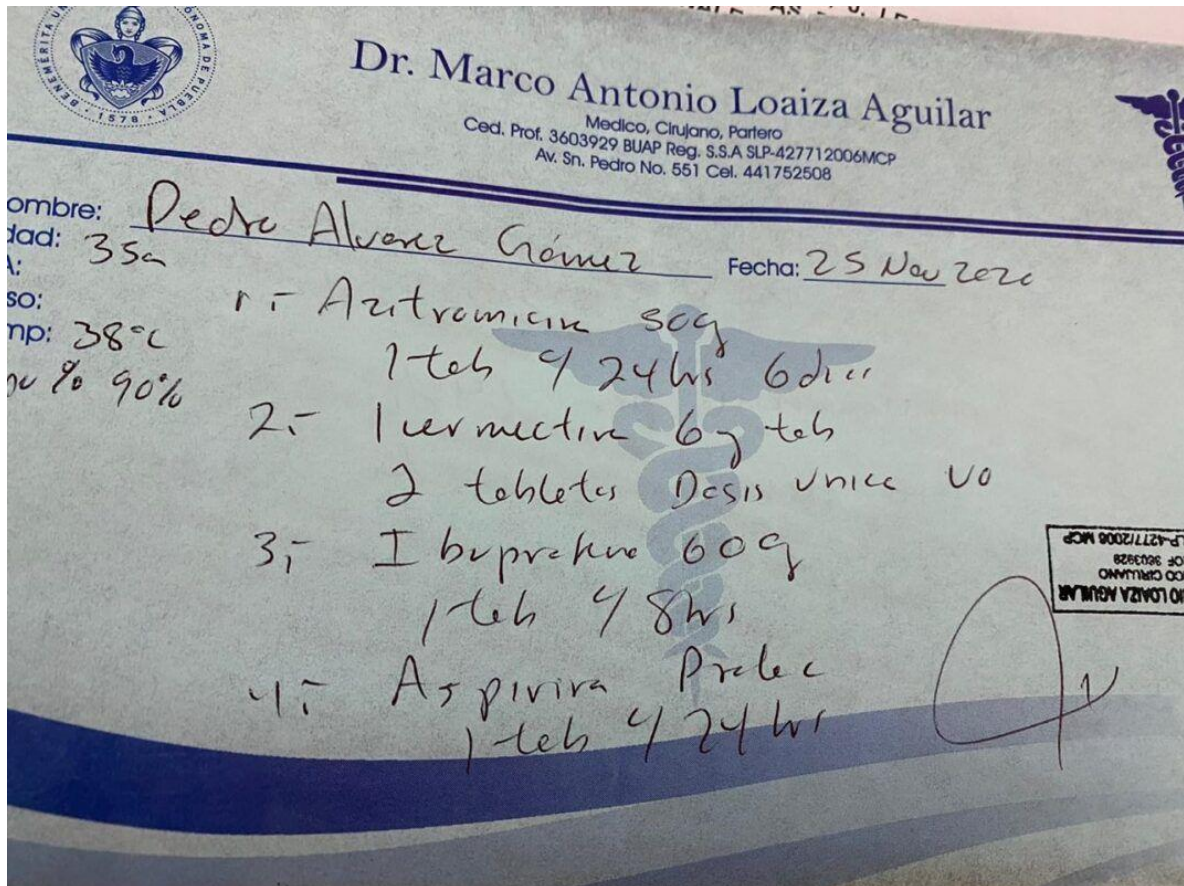 BENEMÉRITA UN
ÓNOMA DE PUEBLA
1578
Dr. Marco Antonio Loaiza Aguilar
Medico, Cirujano, Partero
Ced. Prof. 3603929 BUAP Reg. S.S.A SLP-427712006MCP
Av. Sn. Pedro No. 551 Cel. 441752508
ombre: Pedro Alvarez Gómez
Fecha: 25 Nov 2020
dad: 35a
A:
so:
mp: 38°C
% 90%
1.- Azitromicina 50g
1 tab c/ 24 hrs 6 dias
2.- Ivermectina 6g tab
2 tabletas Dosis unica VO
3.- Ibuprofeno 60g
1 tab c/ 8 hrs
4.- Aspirina Protec
1 tab c/ 24 hrs
IO LOAIZA AGUILAR
CO CIRUJANO
OF 3603929
LP-4277/2006 MCP